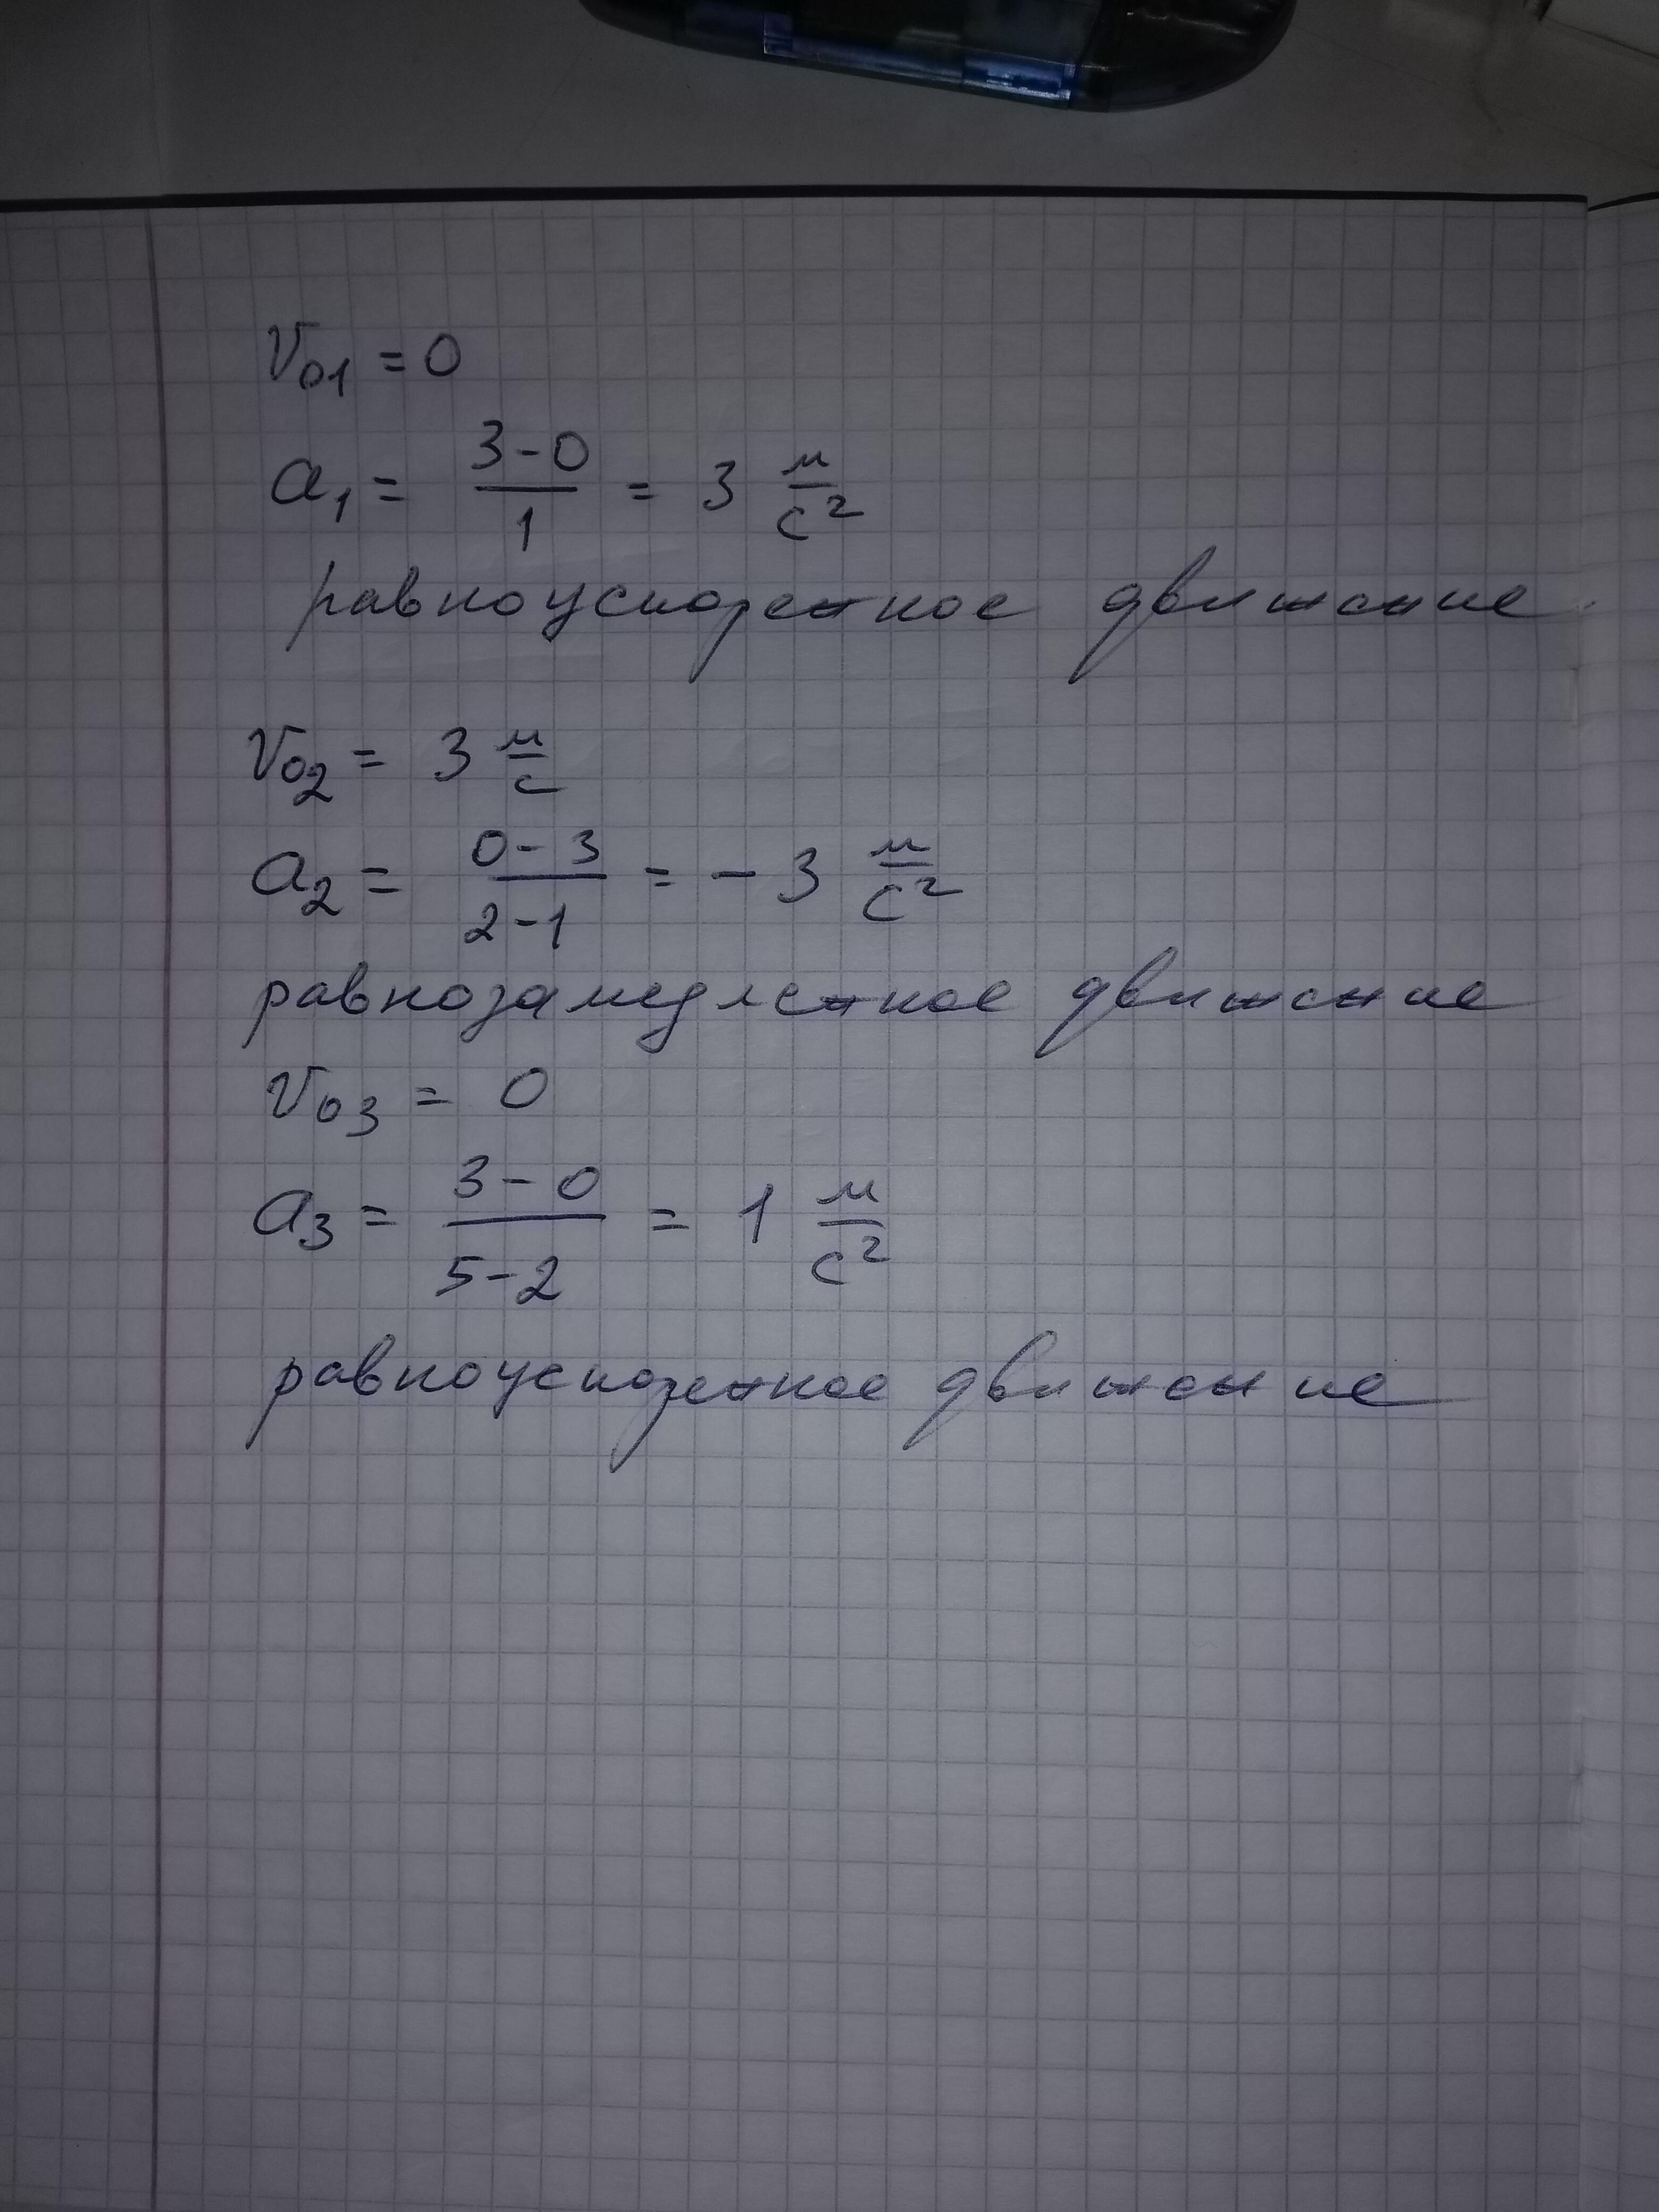 V₀₁ = 0
a₁ = (3-0)/1 = 3 м/с²
равноускоренное движение
V₀₂ = 3 м/с
a₂ = (0-3)/(2-1) = -3 м/с²
равнозамедленное движение
V₀₃ = 0
a₃ = (3-0)/(5-2) = 1 м/с²
равноускоренное движение